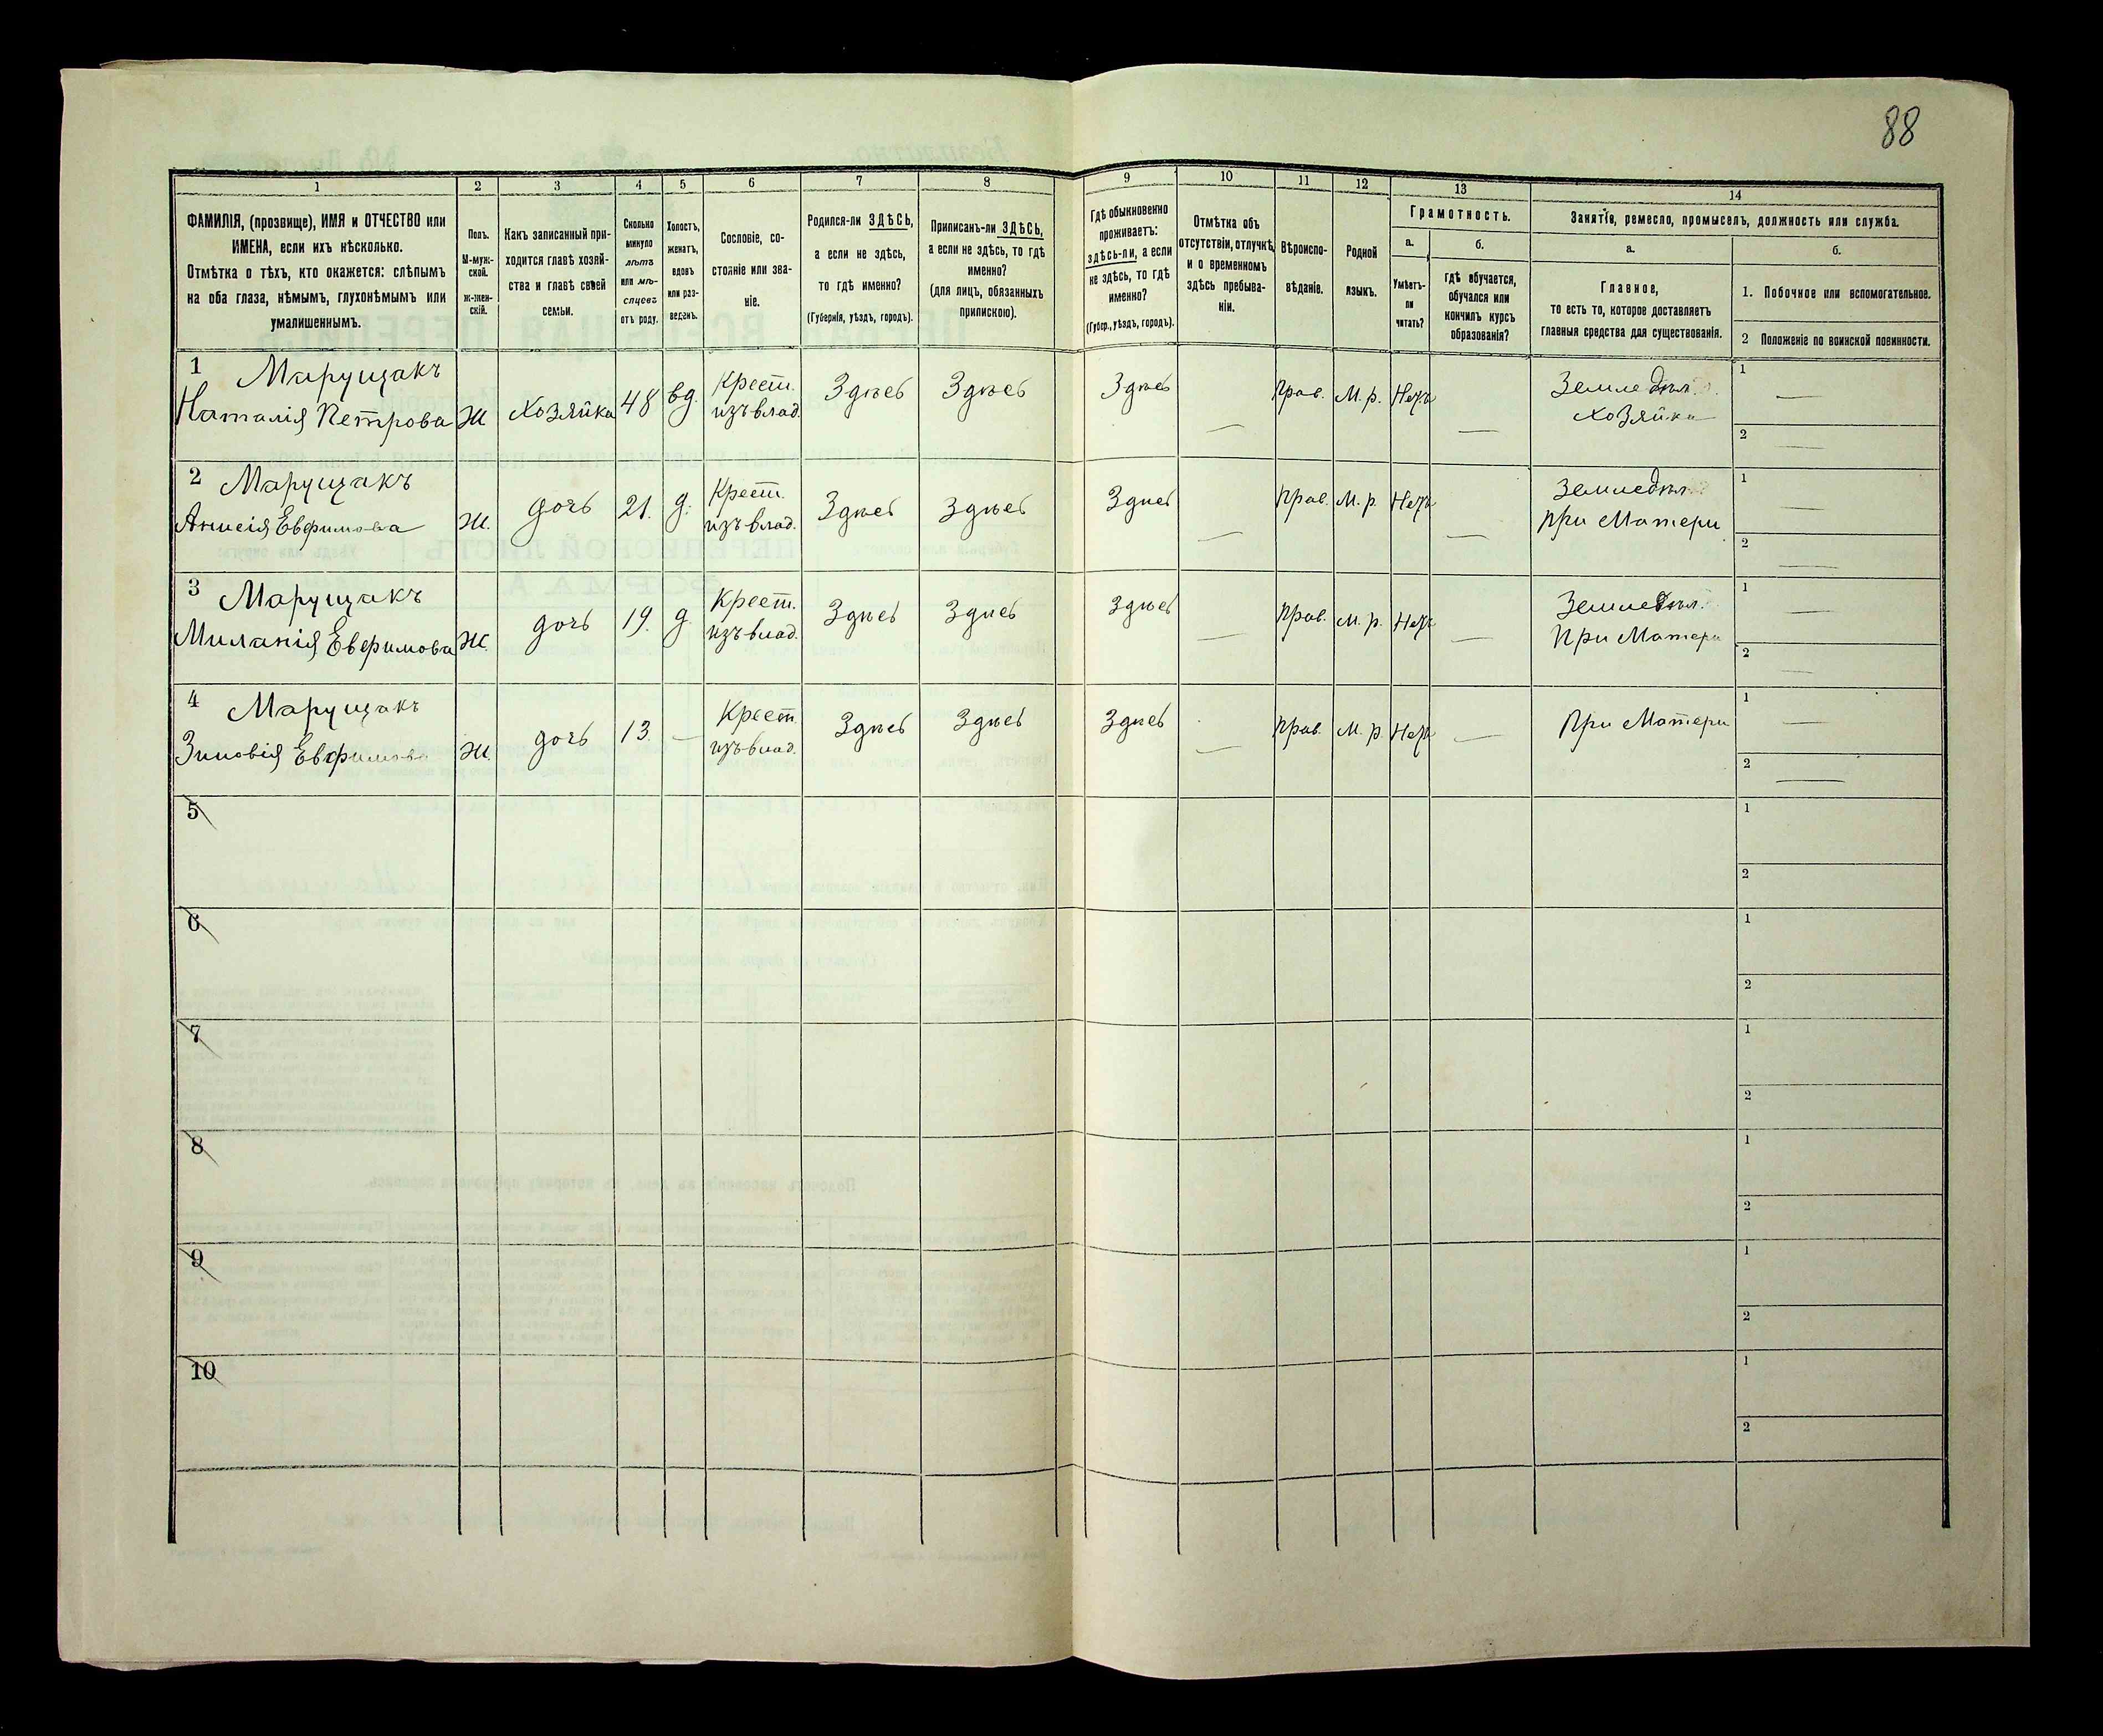 88
1 2 3 4 5 6 7 8 9 10 11 12 13 14
ФАМИЛІЯ, (прозвище), ИМЯ и ОТЧЕСТВО или
ИМЕНА, если ихъ нѣсколько.
Отмѣтка о тѣхъ, кто окажется: слѣпымъ
на оба глаза, нѣмымъ, глухонѣмымъ или
умалишеннымъ.
Полъ.
М-муж-
ской.
ж-жен-
скій.
Какъ записанный при-
ходится главѣ хозяй-
ства и главѣ своей
семьи.
Сколько
минуло
лѣтъ
или мѣ-
сяцевъ
отъ роду.
Холостъ,
женатъ,
вдовъ
или раз-
веденъ.
Сословіе, со-
стояніе или зва-
ніе.
Родился-ли ЗДѢСЬ,
а если не здѣсь,
то гдѣ именно?
(Губернія, уѣздъ, городъ).
Приписанъ-ли ЗДѢСЬ,
а если не здѣсь, то гдѣ
именно?
(для лицъ, обязанныхъ
припискою).
Гдѣ обыкновенно
проживаетъ:
здѣсь-ли, а если
не здѣсь, то гдѣ
именно?
(Губер., уѣздъ, городъ).
Отмѣтка объ
отсутствіи, отлучкѣ
и о временномъ
здѣсь пребыва-
ніи.
Вѣроиспо-
вѣданіе.
Родной
языкъ.
Грамотность.
а. б.
Умѣетъ-
ли
читать?
Гдѣ обучается,
обучался или
кончилъ курсъ
образованія?
Занятіе, ремесло, промыселъ, должность или служба.
а. б.
Главное,
то есть то, которое доставляетъ
главныя средства для существованія.
1. Побочное или вспомогательное.
2 Положеніе по воинской повинности.
1 Марущакъ
Наталія Петрова Ж Хозяйка 48 вд. Крест. изъ влад. Здѣсь Здѣсь Здѣсь — Прав. М. р. Нетъ — Земледѣл. Хозяйка 1 — 2 —
2 Марущакъ
Евфимова Ж. дочь 21. д. Крест. изъ влад. Здѣсь Здѣсь Здѣсь — Прав. М. р. Нетъ — Земледѣл. При Матери 1 — 2 —
3 Марущакъ
Миланія Евфимова Ж. дочь 19. д. Крест. изъ влад. Здѣсь Здѣсь Здѣсь — Прав. М. р. Нетъ — Земледѣл. При Матери 1 — 2 —
4 Марущакъ
Зиновія Евфимова Ж. дочь 13. — Крест. изъ влад. Здѣсь Здѣсь Здѣсь — Прав. М. р. Нетъ — При Матери 1 — 2 —
5 1 2
6 1 2
7 1 2
8 1 2
9 1 2
10 1 2